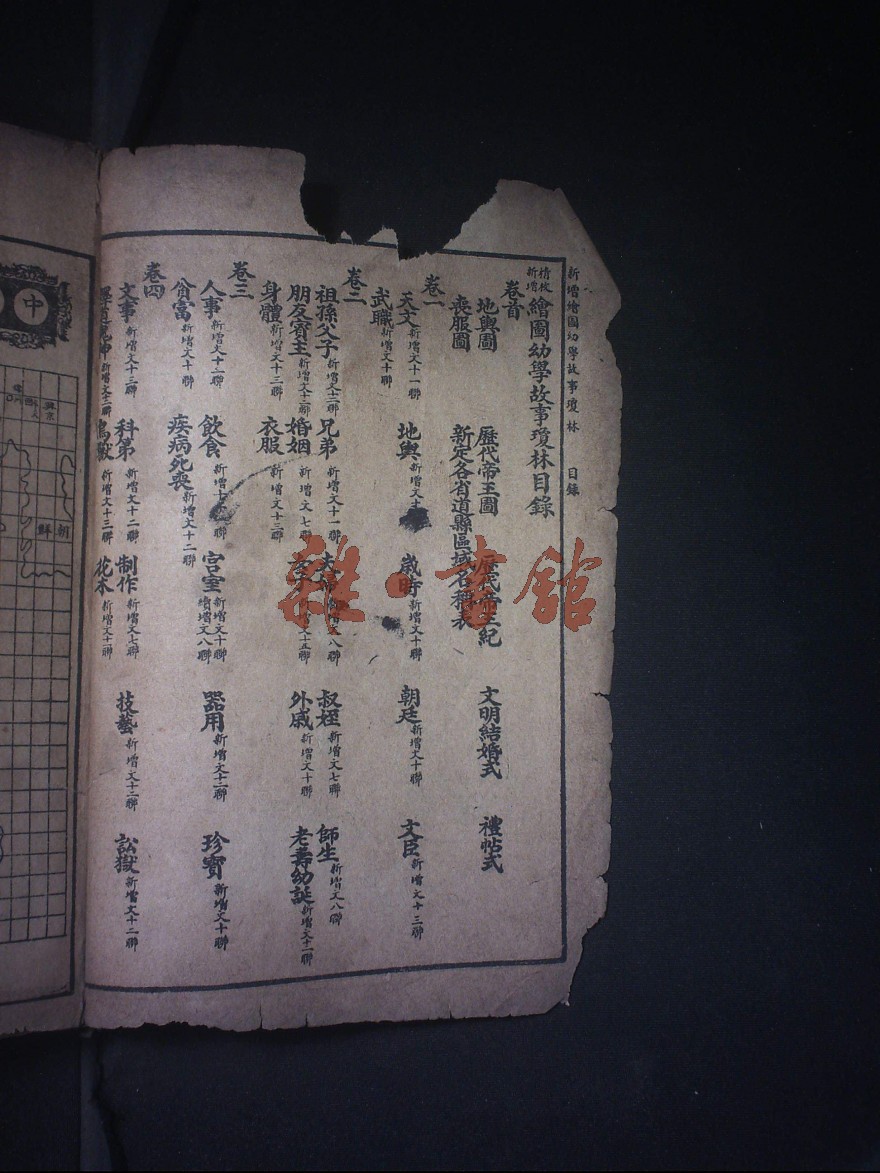 新增繪圖幼學故事瓊林 目錄
精校新增繪圖幼學故事瓊林目錄
卷首
地輿圖 歷代帝王圖 歷代帝王紀 文明結婚式 禮帖式
喪服圖 新定各省道縣區域名稱表
卷一
天文新增文十一聯 地輿新增文十 歲時新增文十聯 朝廷新增文十聯 文臣新增文十三聯
武職新增文十聯
卷二
祖孫父子新增文十二聯 兄弟新增文十一聯 夫婦新增文八聯 叔姪新增文七聯 師生新增文八聯
朋友賓主新增文十二聯 婚姻新增文七聯 女子新增文十五聯 外戚新增文十聯 老壽幼誕新增文十一聯
身體新增文十三聯 衣服新增文十三聯
卷三
人事新增文十二聯 飲食新增 聯 宮室新增文十聯續增文八聯 器用新增文十二聯 珍寶新增文十聯
貧富新增文十聯 疾病死喪新增文十二聯
卷四
文事新增文十三聯 科第新增文十二聯 制作新增文七聯 技藝新增文十三聯 訟獄新增文十二聯
釋道鬼神新增文十三聯 鳥獸新增文十三聯 花木新增文十一聯
中
興京
朝鮮
雜·書館